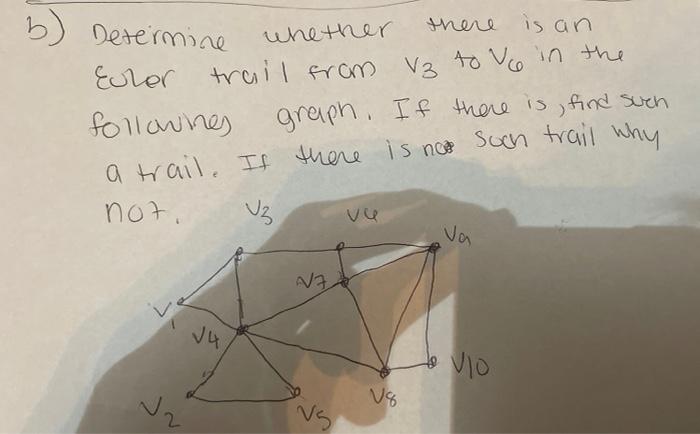 b) Determine whether there is an
Euler trail from V3 to V6 in the
following graph. If there is, find such
a trail. If there is no such trail why
not.
V3 V6
V9
V7
V1
V4
V10
V8
V2 V5